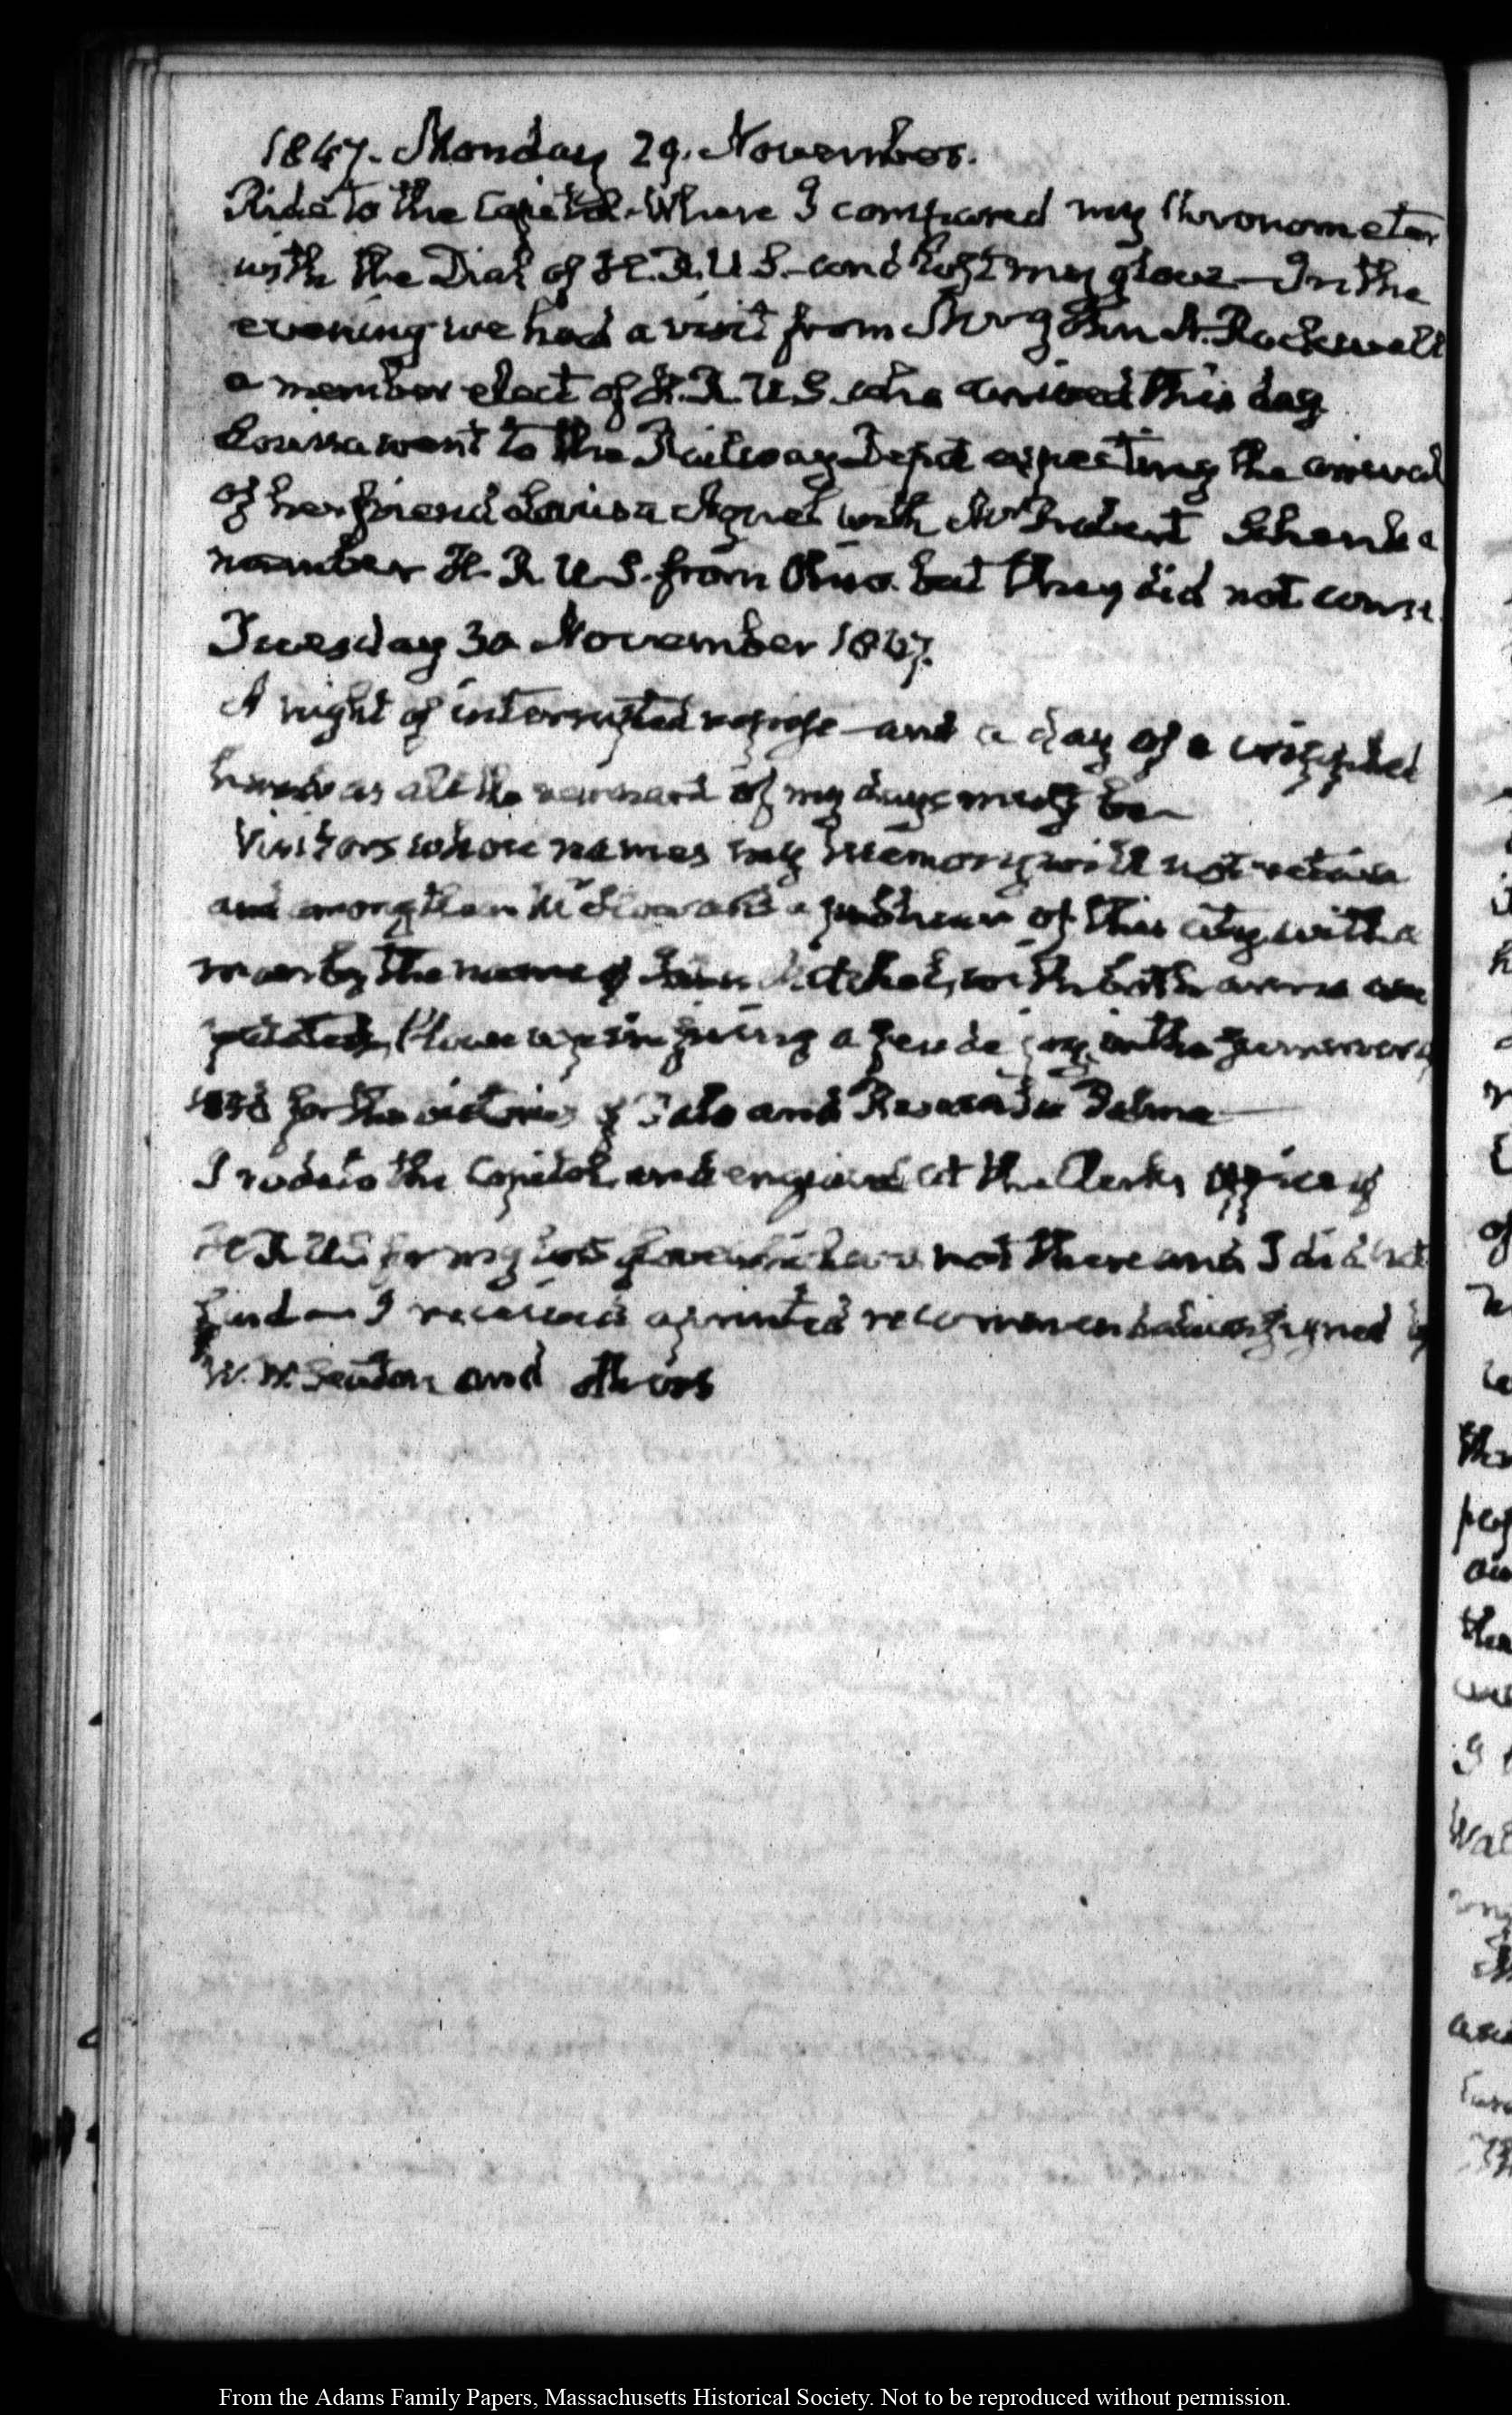 1847. Monday 29. November.
Ride to the Capitol. Where I compared my Chronometer
with the Dial of H.R.U.S. and lost my glove — In the
evening we had a visit from Mr John A. Rockwell
a member elect of H.R.U.S. who arrived this day
Louisa went to the Railway Depot expecting the arrival
of her friend Louisa with Mr Robert Schenk a
member H.R.U.S. from Ohio. but they did not come.
Tuesday 30 November 1847.
A night of interrupted repose — and a day of a crippled
as all the remnant of my days must be —
Visitors whose names my memory will not retain
and among them Mr a of this city with a
man by the name of with both arms am
putated, blown up in firing a feu de joy in the summer of
for the victories of Palo and Resaca de Palma —
I rode to the Capitol and enquired at the Clerks office of
H.R.U.S. for my lost glove not there and I did not
find — I received a printed recommendation signed by
W. W. Seaton and others
From the Adams Family Papers, Massachusetts Historical Society. Not to be reproduced without permission.